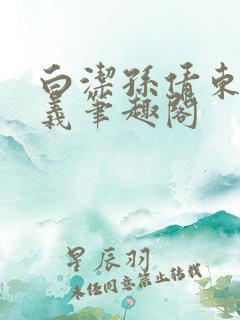 白洁孙倩东
义笔趣阁
星辰羽
未经同意禁止转载